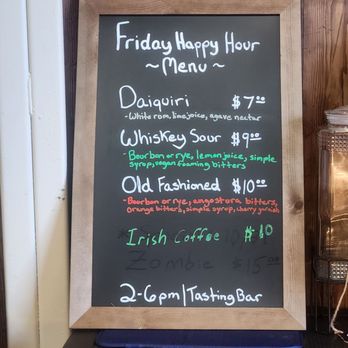 Friday Happy Hour
~ Menu ~
Daiquiri $7.00
- White rum, lime juice, agave nectar
Whiskey Sour $9.00
- Bourbon or rye, lemon juice, simple
syrup, vegan foaming bitters
Old Fashioned $10.00
- Bourbon or rye, angostura bitters,
orange bitters, simple syrup, cherry garnish
Irish Coffee $10
Zombie $15.00
2-6pm | Tasting Bar